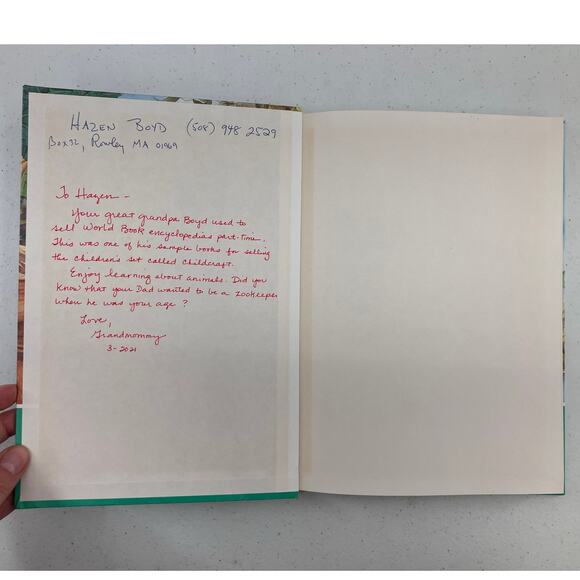 HAZEN BOYD (508) 948 2529
Box 92, Rowley MA 01969
To Hazen -
Your great grandpa Boyd used to
sell World Book encyclopedias part-time.
This was one of his sample books for selling
the children's set called Childcraft.
Enjoy learning about animals. Did you
know that your Dad wanted to be a zookeeper
when he was your age?
Love,
Grandmommy
3-2021